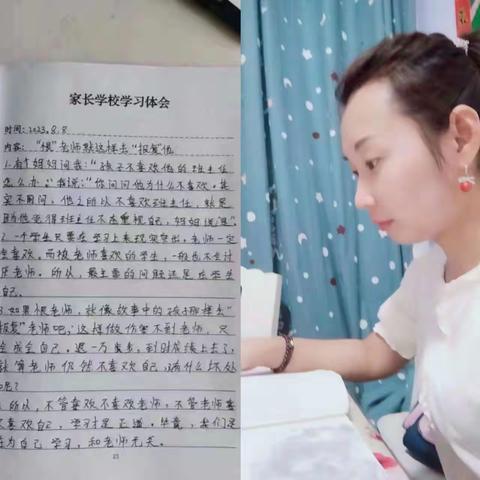 家长学校学习体会
时间：2023.8.8
内容："恨"老师就这样去"报复"他
1.有个妈妈问我："孩子不喜欢他的班主任
怎么办？"我说："你问问他为什么不喜欢，其
实不用问，他之所以不喜欢班主任，就是
因为他觉得班主任不太重视自己，妈妈说是"。
2.一个学生只要在学习上表现突出，老师一定
会喜欢。而被老师喜欢的学生，一般也不会讨
厌老师。所以，最主要的问题还是在学生
自己。
3.如果恨老师，就像故事中的孩子那样去"
报复"老师吧，这样做伤害不到老师，只
会成全自己。退一万步来，到时成绩上去了，
就算老师仍然不喜欢自己，有什么坏处
呢？
所以，不管喜欢不喜欢老师，不管老师喜
不喜欢自己，学习才是正道。毕竟，我们是
在为自己学习，和老师无关。